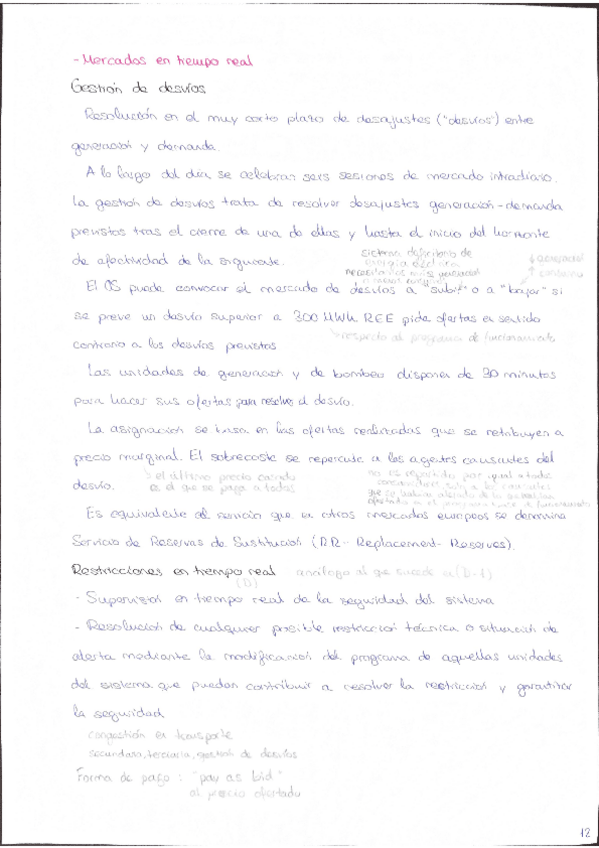 - Mercados en tiempo real
Gestión de desvíos
Resolución en el muy corto plazo de desajustes ("desvíos") entre
generación y demanda.
A lo largo del día se celebran seis sesiones de mercado intradiario.
La gestión de desvíos trata de resolver desajustes generación-demanda
previstos tras el cierre de una de ellas y hasta el inicio del horizonte
de efectividad de la siguiente.
sistema deficitario de
energía eléctrica
necesitamos más generación
o menos consumo
↓ generación
↑ consumo
El OS puede convocar el mercado de desvíos a "subir" o a "bajar" si
se prevé un desvío superior a 300 MWh REE pide ofertas en sentido
contrario a los desvíos previstos
respecto al programa de funcionamiento
Las unidades de generación y de bombeo disponen de 30 minutos
para hacer sus ofertas para resolver el desvío.
La asignación se basa en las ofertas realizadas que se retribuyen a
precio marginal. El sobrecoste se repercute a los agentes causantes del
desvío.
el último precio casado
es el que se paga a todos
no es repartido por igual a todos
consumidores, solo a los causantes
que se habían alejado de lo
Es equivalente al servicio que en otros mercados europeos se denomina
Servicio de Reservas de Sustitución (RR - Replacement - Reserves).
Restricciones en tiempo real análogo al que sucede a (D-1)
(D)
- Supervisión en tiempo real de la seguridad del sistema
- Resolución de cualquier posible restricción técnica o situación de
alerta mediante la modificación del programa de aquellas unidades
del sistema que puedan contribuir a resolver la restricción y garantizar
la seguridad
congestión en transporte
secundaria, terciaria, gestión de desvíos
Forma de pago : "pay as bid"
al precio ofertado
12